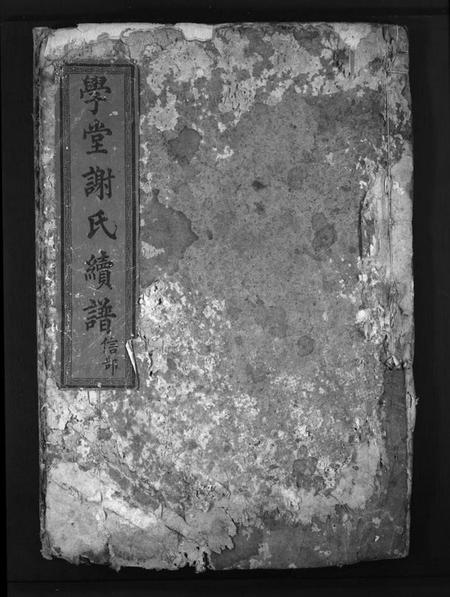 學堂謝氏續譜
信部